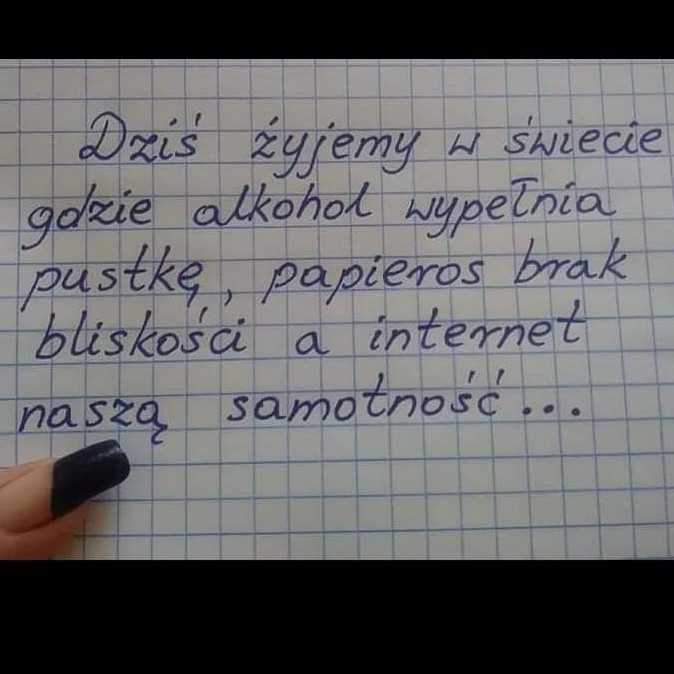 Dziś żyjemy w świecie
gdzie alkohol wypełnia
pustkę, papieros brak
bliskości a internet
naszą samotność...